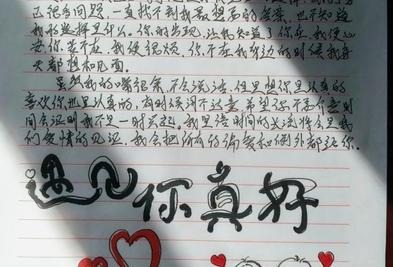 己很多问题，一直找不到我最想要的答案，也不知道
我的选择是什么。你的出现，让我知道了你在，我便心
安，你若不在，我便很烦，你不在我身边的时候我每
天都想和见面。
虽然我的嘴很笨，不会说话，但是想你是认真的，
喜欢你也是认真的，有时候词不达意，希望你不要介意时
间会证明我不是一时兴起。我坚信时间的长流将会是我
们爱情的见证，我会把所有的偏爱和例外都给你。
遇见你真好